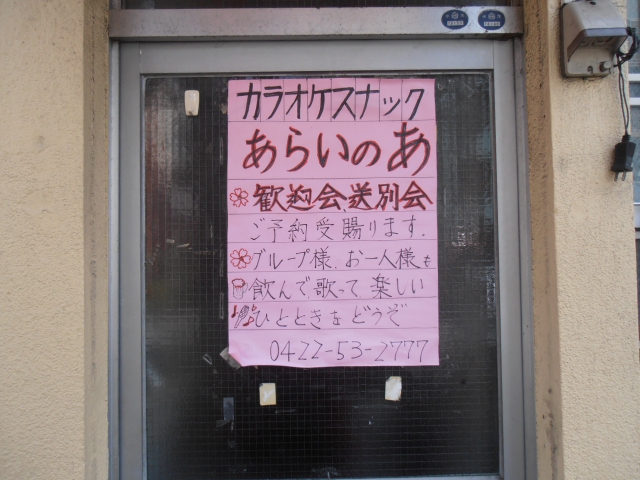 カラオケスナック
あらいのあ
歓迎会送別会
ご予約受賜ります.
グループ様.お一人様も
飲んで歌って楽しい
ひとときをどうぞ
0422-53-2777